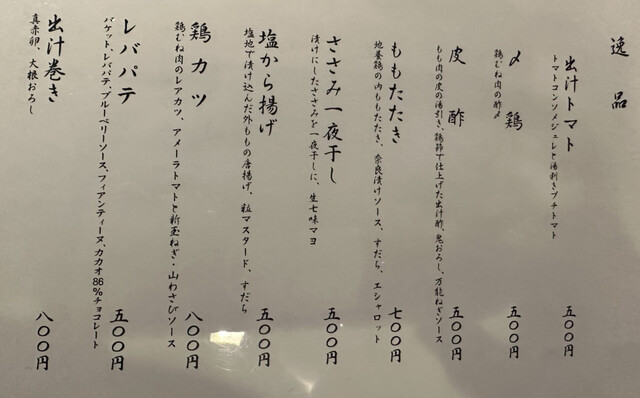 逸品
出汁トマト
トマトコンソメジュレと湯剥きプチトマト
五〇〇円
〆鶏
鶏むね肉の酢〆
五〇〇円
皮酢
もも肉の皮の湯引き、鶏節で仕上げた出汁酢、鬼おろし、万能ねぎソース
五〇〇円
ももたたき
地養鶏の内ももたたき、奈良漬けソース、すだち、エシャロット
七〇〇円
ささみ一夜干し
漬けにしたささみを一夜干しに、生七味マヨ
五〇〇円
塩から揚げ
塩地で漬け込んだ外ももの唐揚げ、粒マスタード、すだち
五〇〇円
鶏カツ
鶏むね肉のレアカツ、アメーラトマトと新玉ねぎ・山わさびソース
八〇〇円
レバパテ
バケット、レバパテ、ブルーベリーソース、フィアンティーヌ、カカオ86%チョコレート
五〇〇円
出汁巻き
真赤卵、大根おろし
八〇〇円